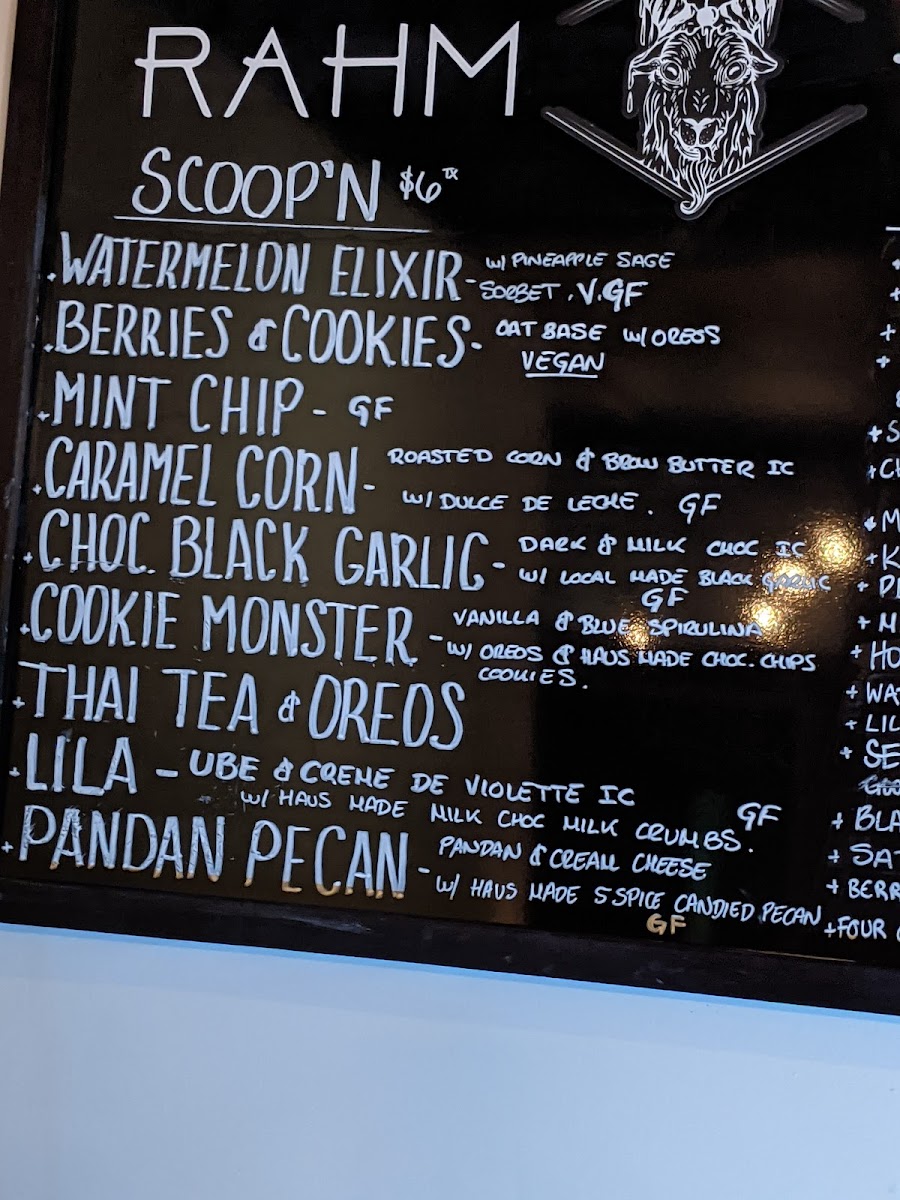 RAHM
SCOOP'N $6 TX
+WATERMELON ELIXIR- w/ PINEAPPLE SAGE
SORBET. V. GF
+BERRIES & COOKIES- OAT BASE w/ OREOS
VEGAN
+MINT CHIP- GF
+CARAMEL CORN- ROASTED CORN & BROW BUTTER IC
w/ DULCE DE LECHE. GF
+CHOC. BLACK GARLIC- DARK & MILK CHOC IC
w/ LOCAL MADE BLACK GARLIC
GF
+COOKIE MONSTER- VANILLA & BLUE SPIRULINA
w/ OREOS & HAUS MADE CHOC. CHIPS
COOKIES.
+THAI TEA & OREOS
+LILA - UBE & CREME DE VIOLETTE IC
w/ HAUS MADE MILK CHOC MILK CRUMBS. GF
+PANDAN PECAN- PANDAN & CREAM CHEESE
w/ HAUS MADE 5 SPICE CANDIED PECAN
GF
+S
+CH
+M
+K
+M
+HO
+WA
+LIL
+SE
+BLA
+SAT
+BERR
+FOUR